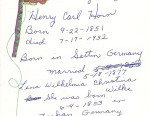 Henry Carl Horn
Born 9-22-1851
died 7-17-1932
Born in Settin Germany
married 5-18-1877
Lena Wilhelmia Christina Wilke
She was born
6-9-1853 in
Germany